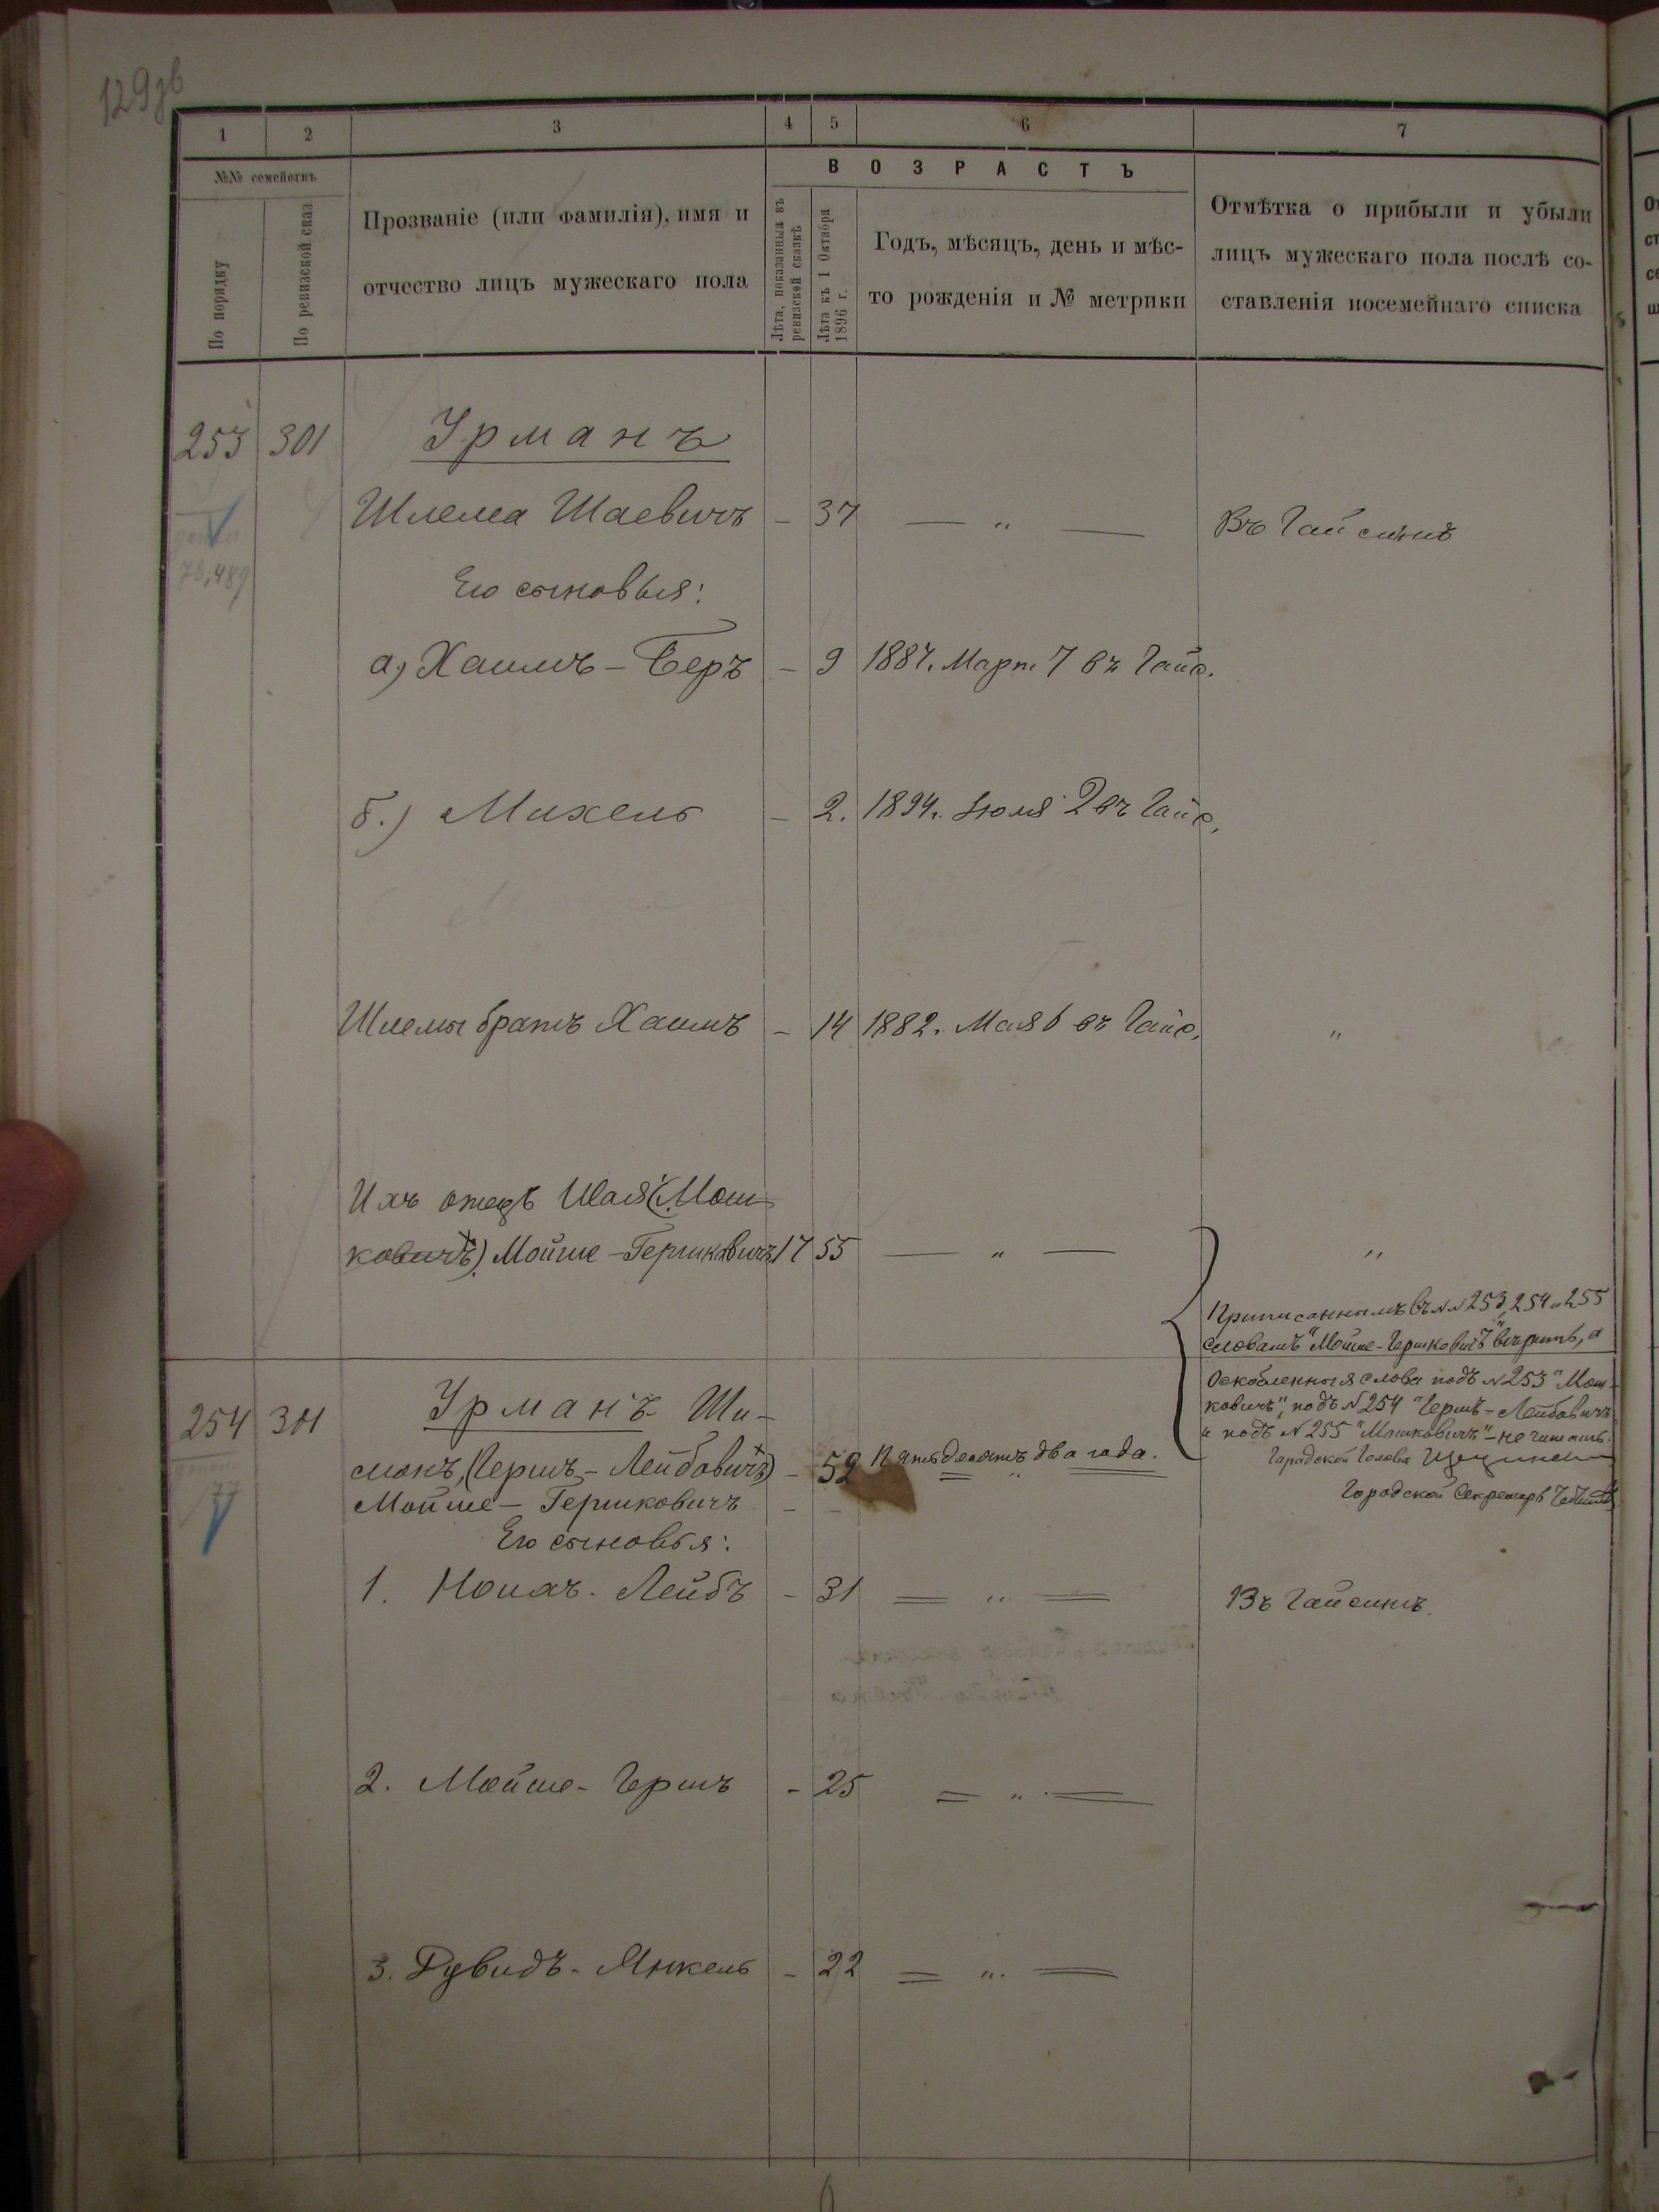 129зв
1 2 3 4 5 6 7
№№ семействъ
По порядку
По ревизской сказ
Прозваніе (или фамилія), имя и
отчество лицъ мужескаго пола
ВОЗРАСТЪ
Лѣта, показанныя въ
ревизской сказкѣ
Лѣта къ 1 Октября
1896 г.
Годъ, мѣсяцъ, день и мѣс-
то рожденія и № метрики
Отмѣтка о прибыли и убыли
лицъ мужескаго пола послѣ со-
ставленія посемейнаго списка
253 301 Урманъ
Шлема Шаевичъ - 37 — „ — Въ Гайсинѣ
76,489
Его сыновья:
а) Хаимъ-Беръ - 9 1887. Март. 7 въ Гайс.
б.) Михель - 2. 1894. Іюля 2 въ Гайс.
Шлемы братъ Хаимъ - 14 1882. Мая 6 въ Гайс. „
Ихъ отецъ Шая (Мош-
ковичъ) Мойше-Гершковичъ 17 55 — „ — „
Приписаннымъ въ №№ 253, 254 и 255
словамъ "Мойше-Гершковичъ" вѣрить, а
Оскобленныя слова подъ №253 "Мош-
ковичъ", подъ №254 "Гершъ-Лейбовичъ
и подъ №255 "Мошковичъ" - не читать.
Городской Голова
Городской Секретарь
254 301 Урманъ Ши-
монъ, (Гершъ-Лейбовичъ) - 52 Пятьдесятъ два года.
77
Мойше-Гершковичъ -
Его сыновья:
1. Нонах. Лейбъ - 31 — „ — Въ Гайсинѣ.
2. Мойше-Гершъ - 25 — „ —
3. Дувидъ-Янкель - 22 — „ —